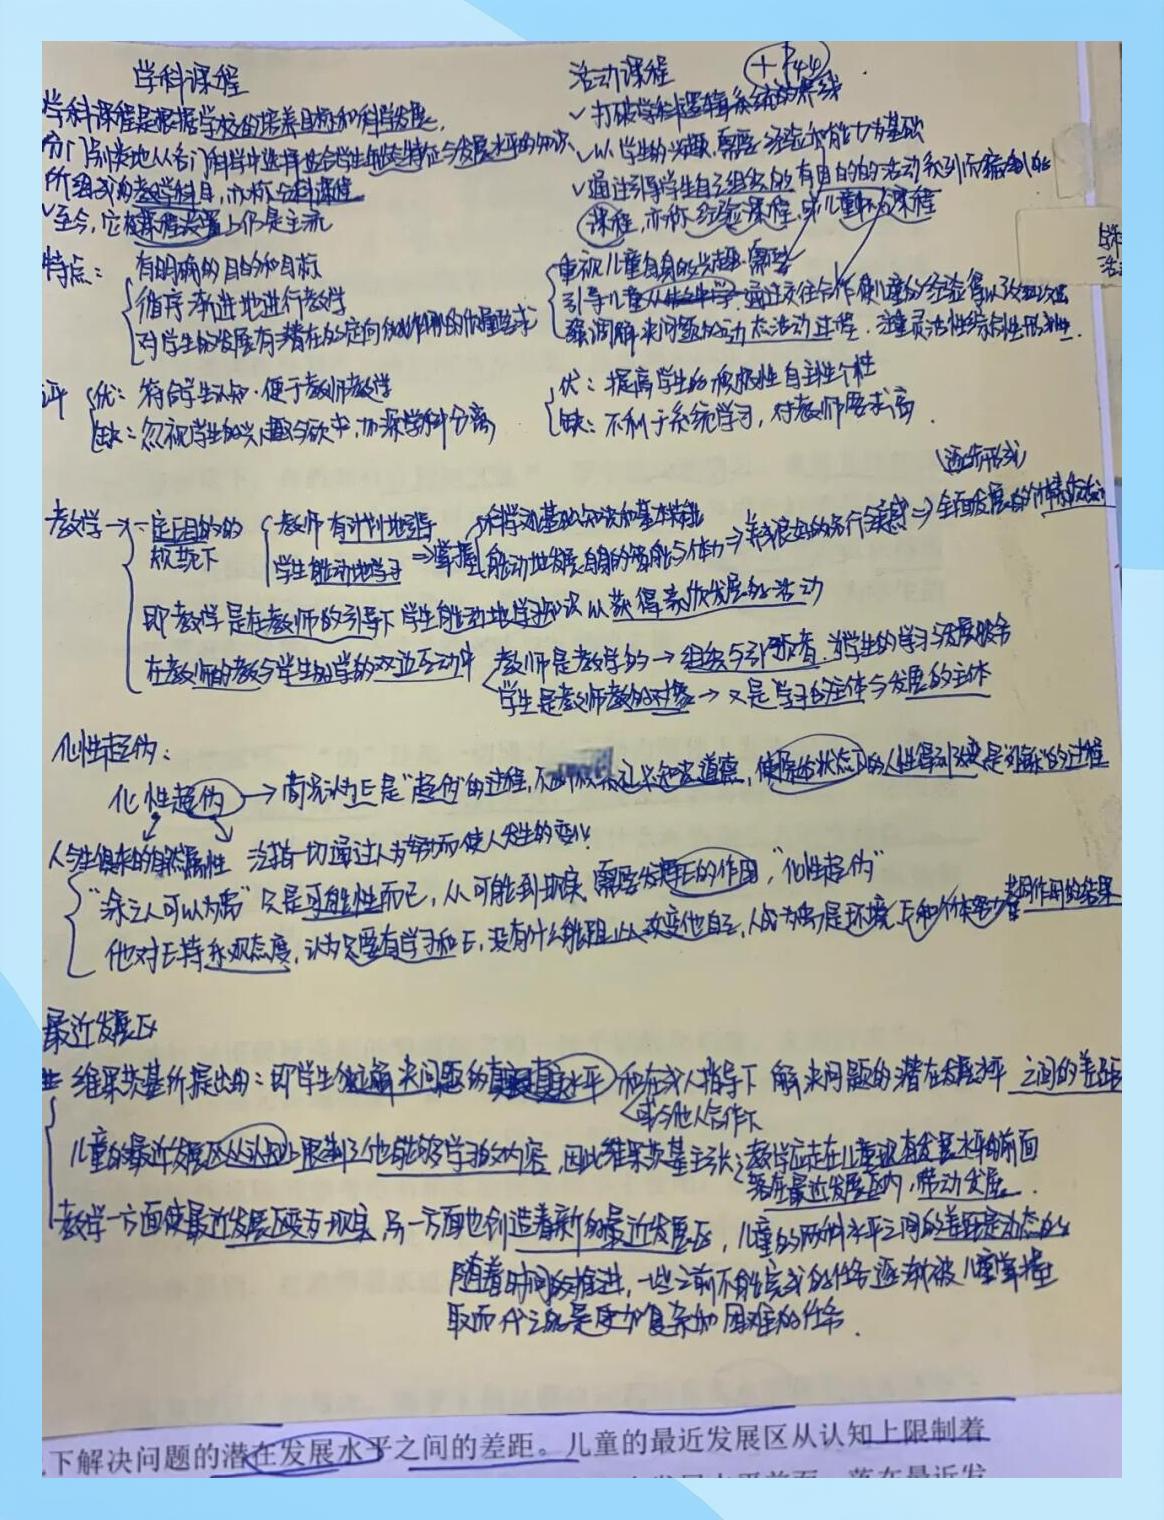 学科课程
学科课程是根据学校的培养目标和科学发展,
分门别类地从各门科学中选择适合学生年龄特征与发展水平的知识
所组成的教学科目,亦称分科课程
✓至今,它在课程设置上仍是主流
特点:
有明确的目的和目标
循序渐进地进行教学
对学生的发展有潜在的定向的
评
优:符合学生认知·便于教师教学
缺:忽视学生的兴趣与欲求,加深学科分离
活动课程
+P44
✓打破学科逻辑系统的界线
✓以学生的兴趣、需要、经验和能力为基础
✓通过引导学生自己组织的有目的的活动系列而编制的
课程,亦称经验课程,或儿童中心课程
重视儿童自身的兴趣、需要
引导儿童 通过交往合作使儿童的经验得以改组改造
强调解决问题的动态活动过程,注重灵活性综合性形成性.
优:提高学生的积极性自主性个性
缺:不利于系统学习,对教师要求高.
(逐步形成)
教学→一定目的的
规范下
教师有计划地引导
学生能动地学习
⇒掌握
科学文基础知识和基本技能
能动地发展自身的智能与体力⇒养成良好的品行与美感⇒全面发展的个体的活动
即教学是在教师的引导下学生能动地学习知识以获得素质发展的活动
在教师的教与学生的学的双边互动中
教师是教学的→组织与引领者.为学生的学习与发展服务
学生是教师教的对象→又是学习的主体与发展的主体
化性起伪:
化性起伪→荀况认为E是“起伪”的过程,不断 知识道德,使原始状态下的人性得到改变是列的过程
人与生俱来的自然属性 泛指一切通过人为努力而使人发生的变化
“涂之人可以为禹”只是可能性而已,从可能到现实需要发挥E的作用,“化性起伪”
他对E持乐观态度,认为只要有学习和E,没有什么能阻止人改变他自己,人成为禹是环境、E和个体努力共同作用的结果
最近发展区
维果茨基所提出的:即学生独立解决问题的真实水平和在成人指导下解决问题的潜在发展水平之间的差距
或与他人合作下
儿童的最近发展区从认知上限制了他能够学习的内容,因此维果茨基主张:教学应走在儿童现有发展水平的前面
落在最近发展区内,带动发展.
教学一方面使最近发展区变为现实,另一方面也创造着新的最近发展区,儿童的两种水平之间的差距是动态的
随着时间的推进,一些之前不能完成的任务逐渐被儿童掌握
取而代之的是更加复杂和困难的任务.
下解决问题的潜在发展水平之间的差距。儿童的最近发展区从认知上限制着